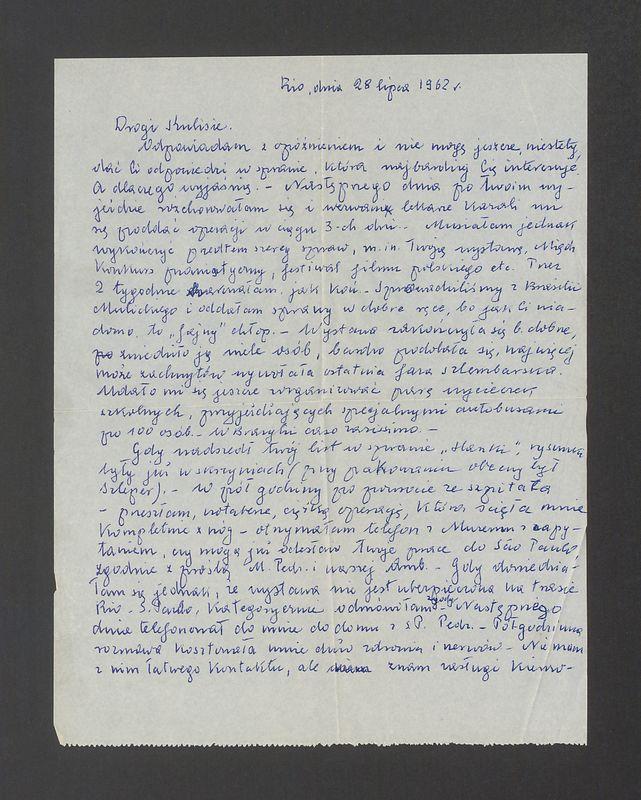 Rio, dnia 28 lipca 1962 r.
Drogi Kulisie.
Odpowiadam z opóźnieniem i nie mogę jeszcze, niestety,
dać Ci odpowiedzi w sprawie, która najbardziej Cię interesuje.
A dlaczego wyjaśnię. - Następnego dnia po Twoim wy-
jeździe rozchorowałam się i wezwany lekarz kazał mi
się poddać operacji w ciągu 3-ch dni. - Musiałam jednak
wykończyć przedtem szereg spraw, m.in. Twoją wystawę, Międz.
Konkurs, festiwal filmu polskiego etc. Przez
2 tygodnie harowałam jak koń. - Sprowadziliśmy z Brasilii
i oddałam sprawy w dobre ręce, bo jak Ci wia-
domo to "fajny" chłop. - Wystawa zakończyła się b. dobrze,
zwiedziło ją wiele osób, bardzo podobała się, najwięcej
może zachwytów wywołała ostatnia faza szlembarska.
Udało mi się jeszcze zorganizować parę wycieczek
szkolnych, przyjeżdżających specjalnymi autobusami
po 100 osób. - W Brazylii czasorasissimo. -
Gdy nadszedł Twój list w sprawie "Hanki", rysunki
były już w skrzyniach (przy pakowaniu obecny był
Szleper). - W pół godziny po powrocie ze szpitala
- przeszłam, notabene, ciężką operację, która ścięła mnie
kompletnie z nóg - otrzymałam telefon z Muzeum z zapy-
taniem, czy mogą już odesłać Twoje prace do São Paulo
zgodnie z prośbą M. Pedr. i naszej Amb. - Gdy dowiedzia-
łam się jednak, że wystawa nie jest ubezpieczona na trasie
Rio - S. Paulo, kategorycznie odmówiłam zgody. - Następnego
dnia telefonował do mnie do domu z S.P. Pedr. - Półgodzinna
rozmowa kosztowała mnie dużo zdrowia i nerwów. - Nie mam
z nim łatwego kontaktu, ale znam zasługi